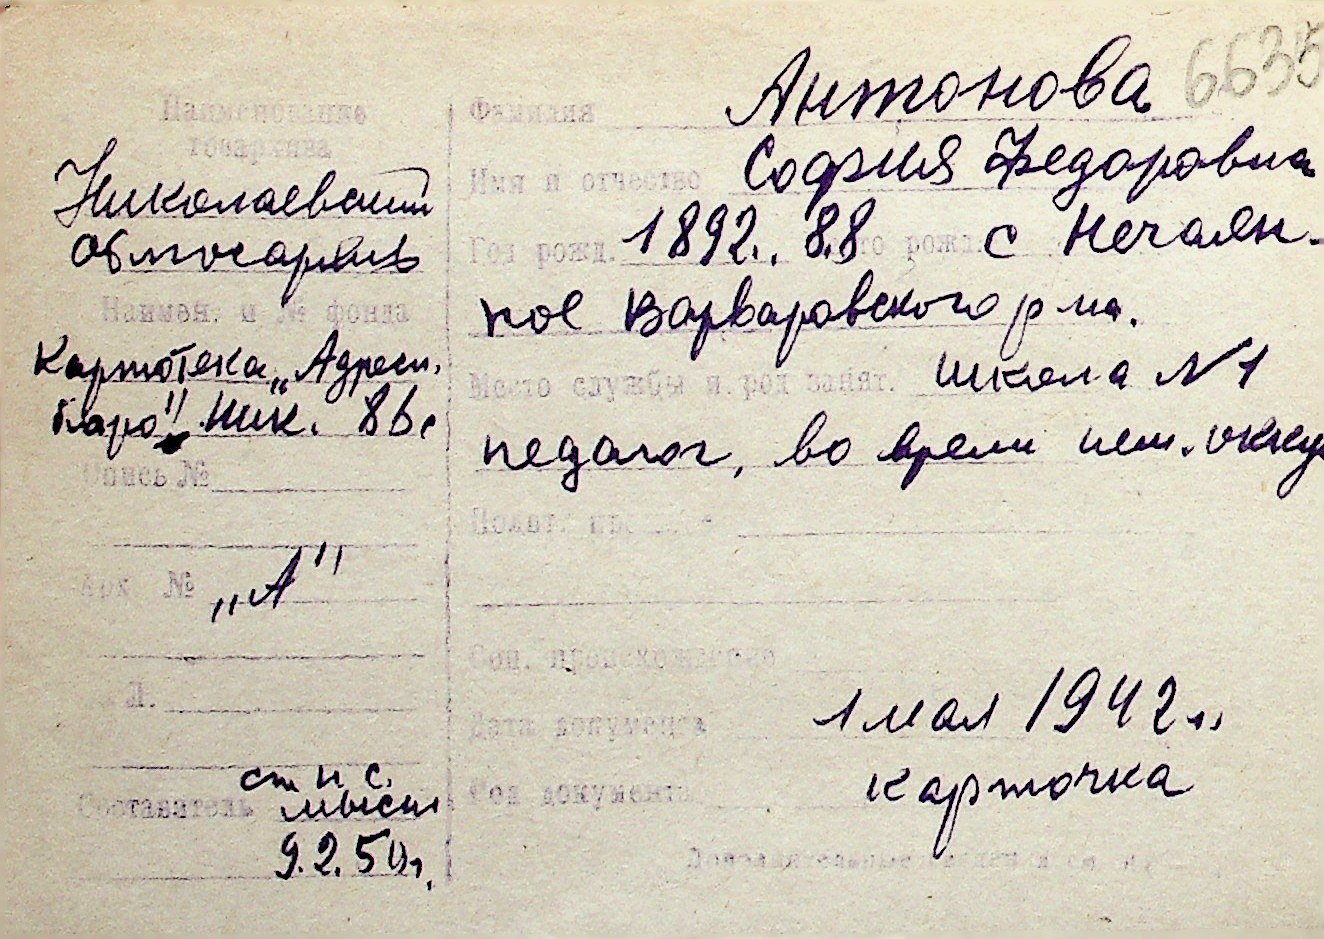 6635
Наименование
госархива
Николаевский
облгосархив
Наимен. и № фонда
Картотека „Адресн.
бюро" Ник.
Опись №
Арх №
„А"
Л.
ст н с.
Составитель
9.2.50г.
Фамилия Антонова
Имя и отчество София Федоровна
Год рожд. 1892г. 8.8 место рожд. с Нечаян-
ное Варваровского р на.
Место службы и род занят. школа №1
педагог, во время нем. оккуп
Полит.
Соц. происхождение
Дата документа 1 мая 1942г.
Род документа карточка
Дополнительные сведения см. на